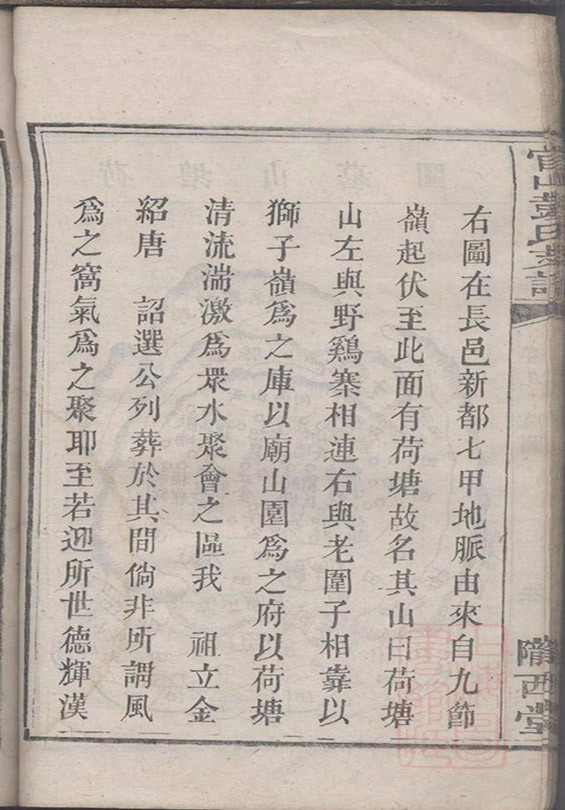 右圖在長邑新都七甲地脈由來自九節
嶺起伏至此面有荷塘故名其山曰荷塘
山左與野鷄寨相連右與老圍子相靠以
獅子嶺爲之庫以廟山園爲之府以荷塘
清流湍激爲眾水聚會之區我　祖立金
紹唐　詔選公列葬於其間倘非所謂風
爲之窩氣爲之聚耶至若迎所世德輝漢
隴西堂